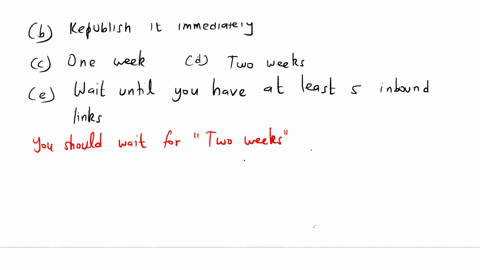 (b) Republish it immediately
(c) One week (d) Two weeks
(e) Wait until you have at least 5 inbound
links
You should wait for "Two weeks"